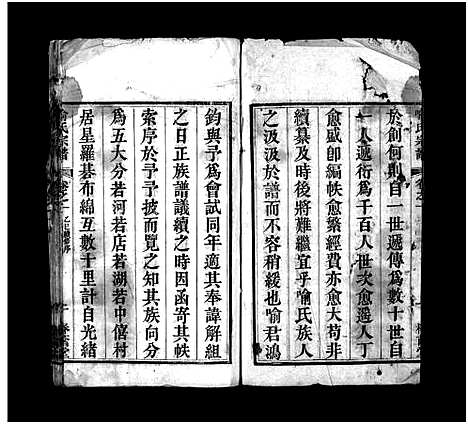 於創何則自一世遞傳為數十世自
一人遞衍為千百人世次愈遠人丁
愈盛卽編帙愈繁經費亦愈大苟非
續纂及時後將難繼宜乎喻氏族人
之汲汲於譜而不容稍緩也喻君鴻
鈞與予為會試同年適其奉諱解組
之日正族譜議續之時因函寄其帙
索序於予予披而覽之知其族向分
為五大分若河若店若湖若中僖村
居星羅碁布綿互數十里計自光緒
喻氏宗譜
卷之一